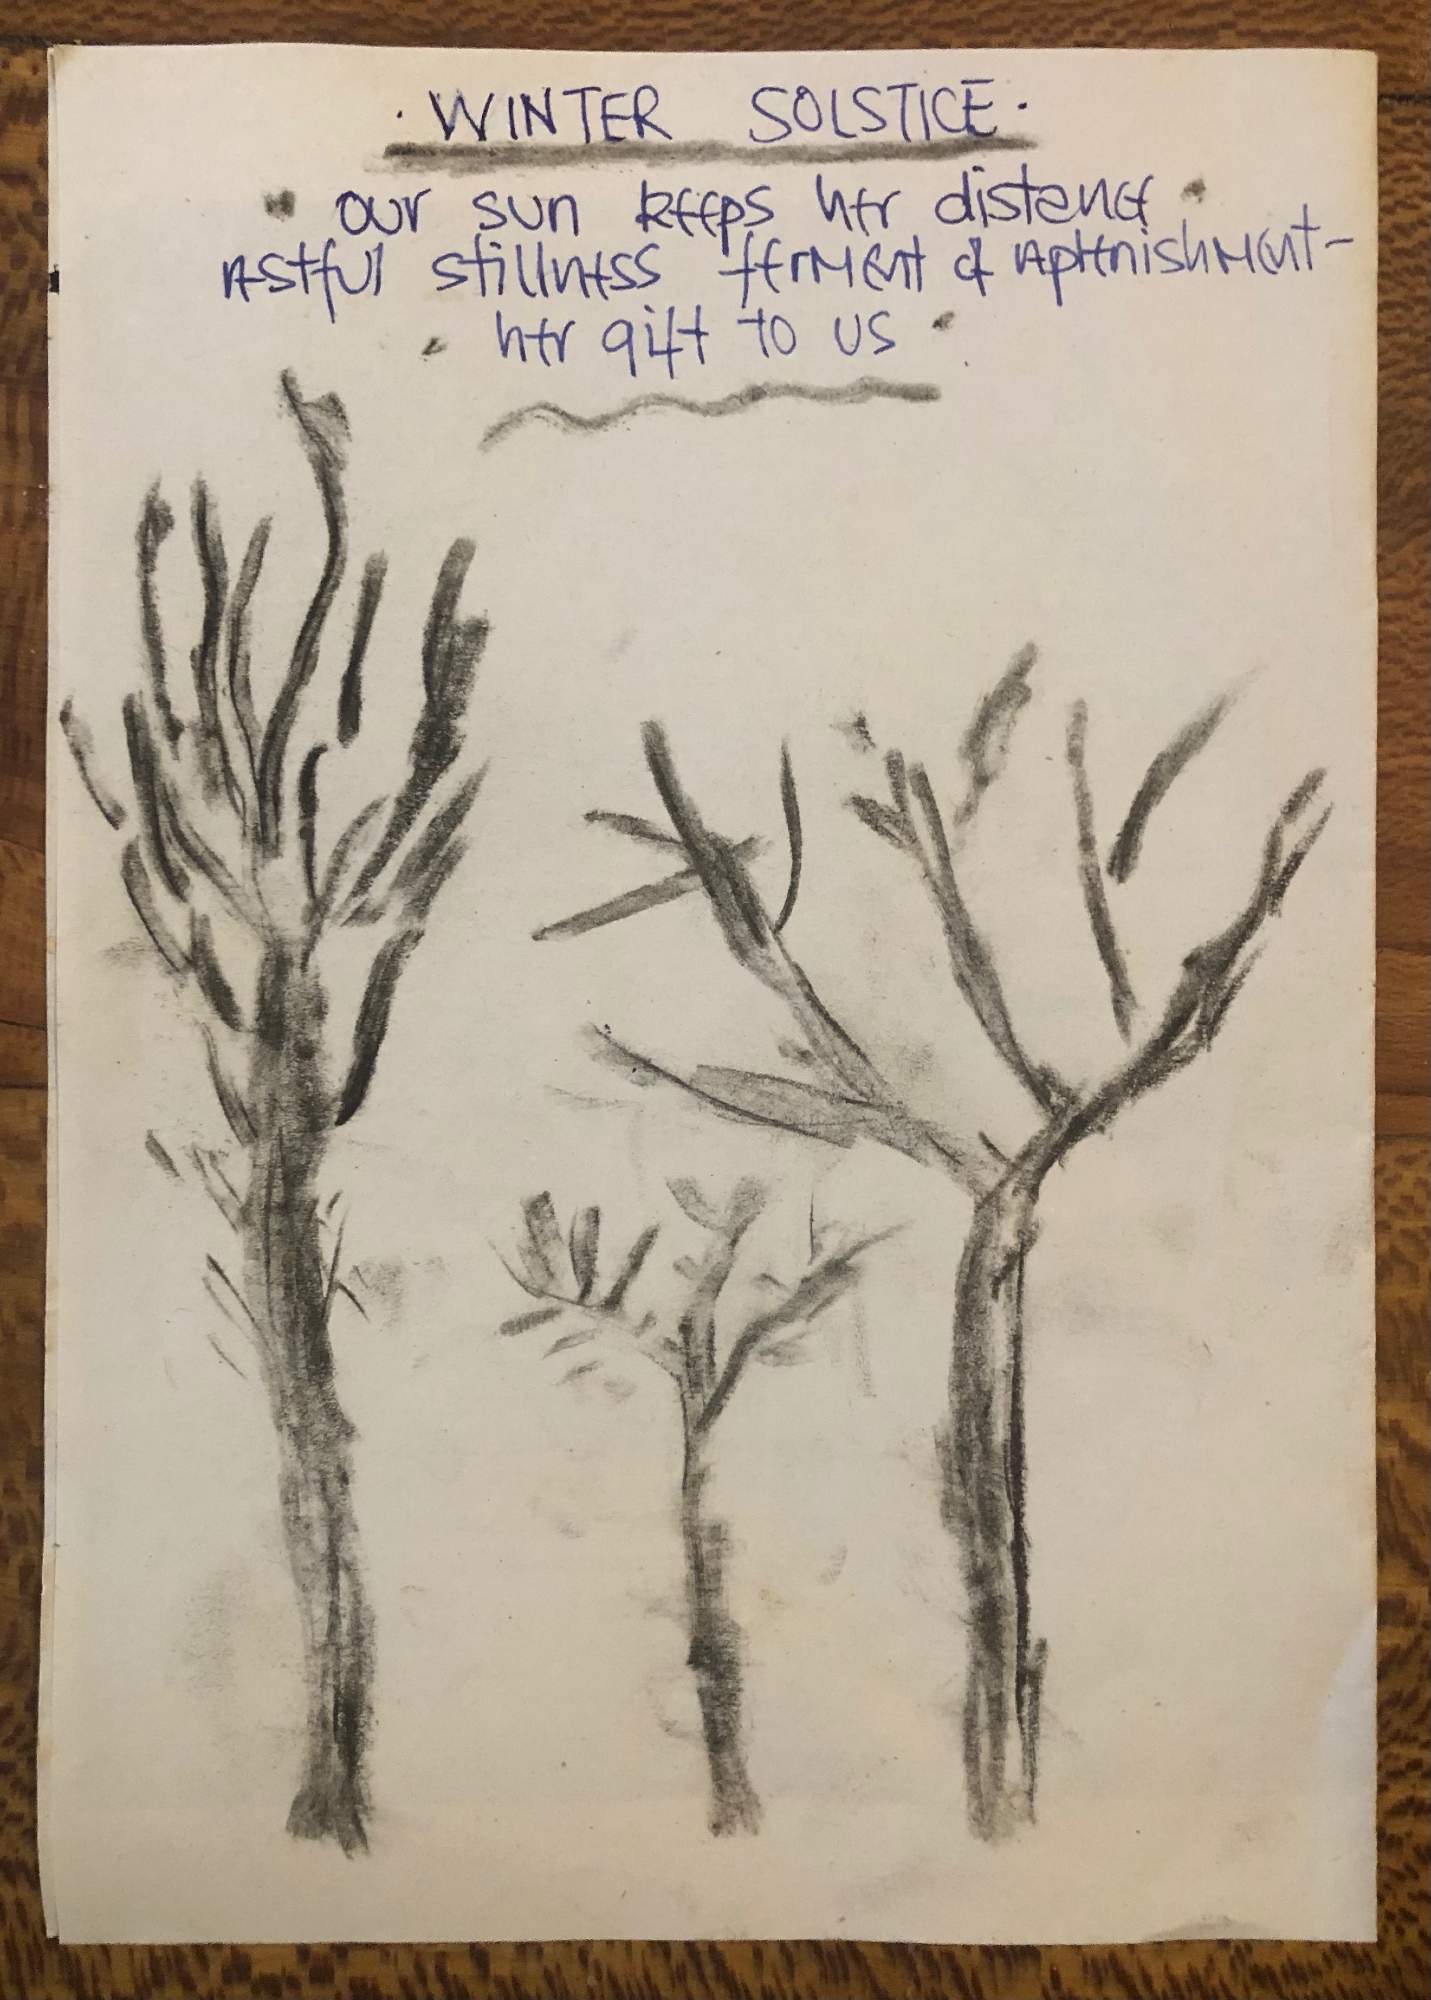 · WINTER SOLSTICE ·
• our sun keeps her distance •
restful stillness ferment & replenishment -
• her gift to us •